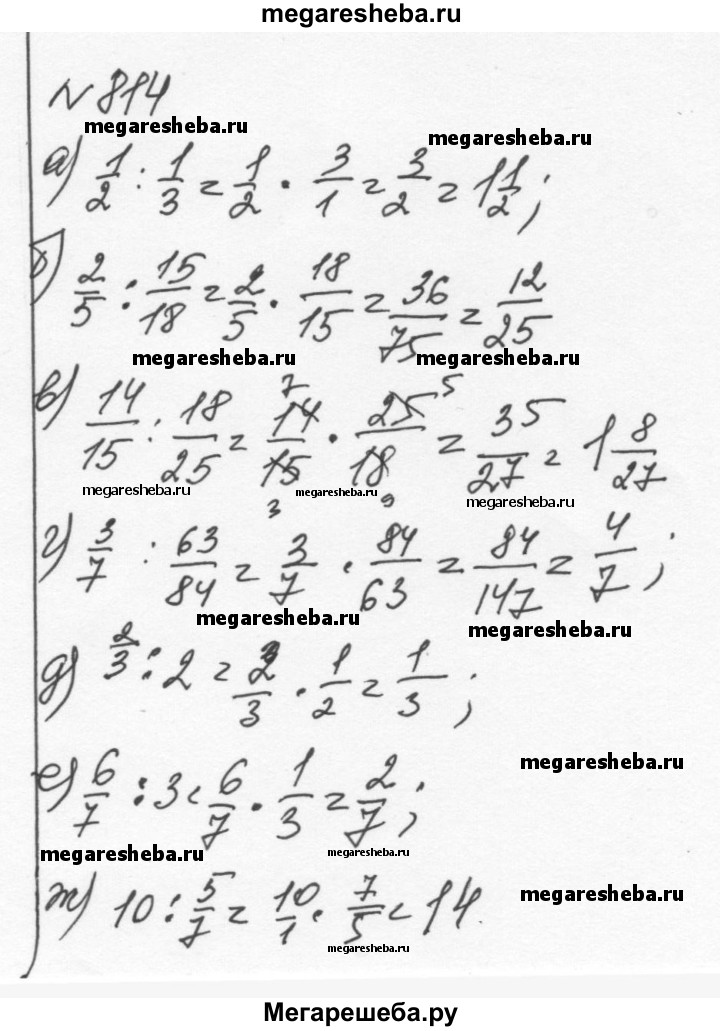 megaresheba.ru
№ 814
megaresheba.ru
megaresheba.ru
а) 1/2 : 1/3 = 1/2 · 3/1 = 3/2 = 1 1/2;
б) 2/5 : 15/18 = 2/5 · 18/15 = 36/75 = 12/25
megaresheba.ru
megaresheba.ru
7 5
в) 14/15 : 18/25 = 14/15 · 25/18 = 35/27 = 1 8/27
megaresheba.ru
megaresheba.ru
megaresheba.ru
3 9
г) 3/7 : 63/84 = 3/7 · 84/63 = 84/147 = 4/7;
megaresheba.ru
megaresheba.ru
д) 2/3 : 2 = 2/3 · 1/2 = 1/3;
megaresheba.ru
е) 6/7 : 3 = 6/7 · 1/3 = 2/7;
megaresheba.ru
megaresheba.ru
ж) 10 : 5/7 = 10/1 · 7/5 = 14
megaresheba.ru
megaresheba.ru
Мегарешеба.ру